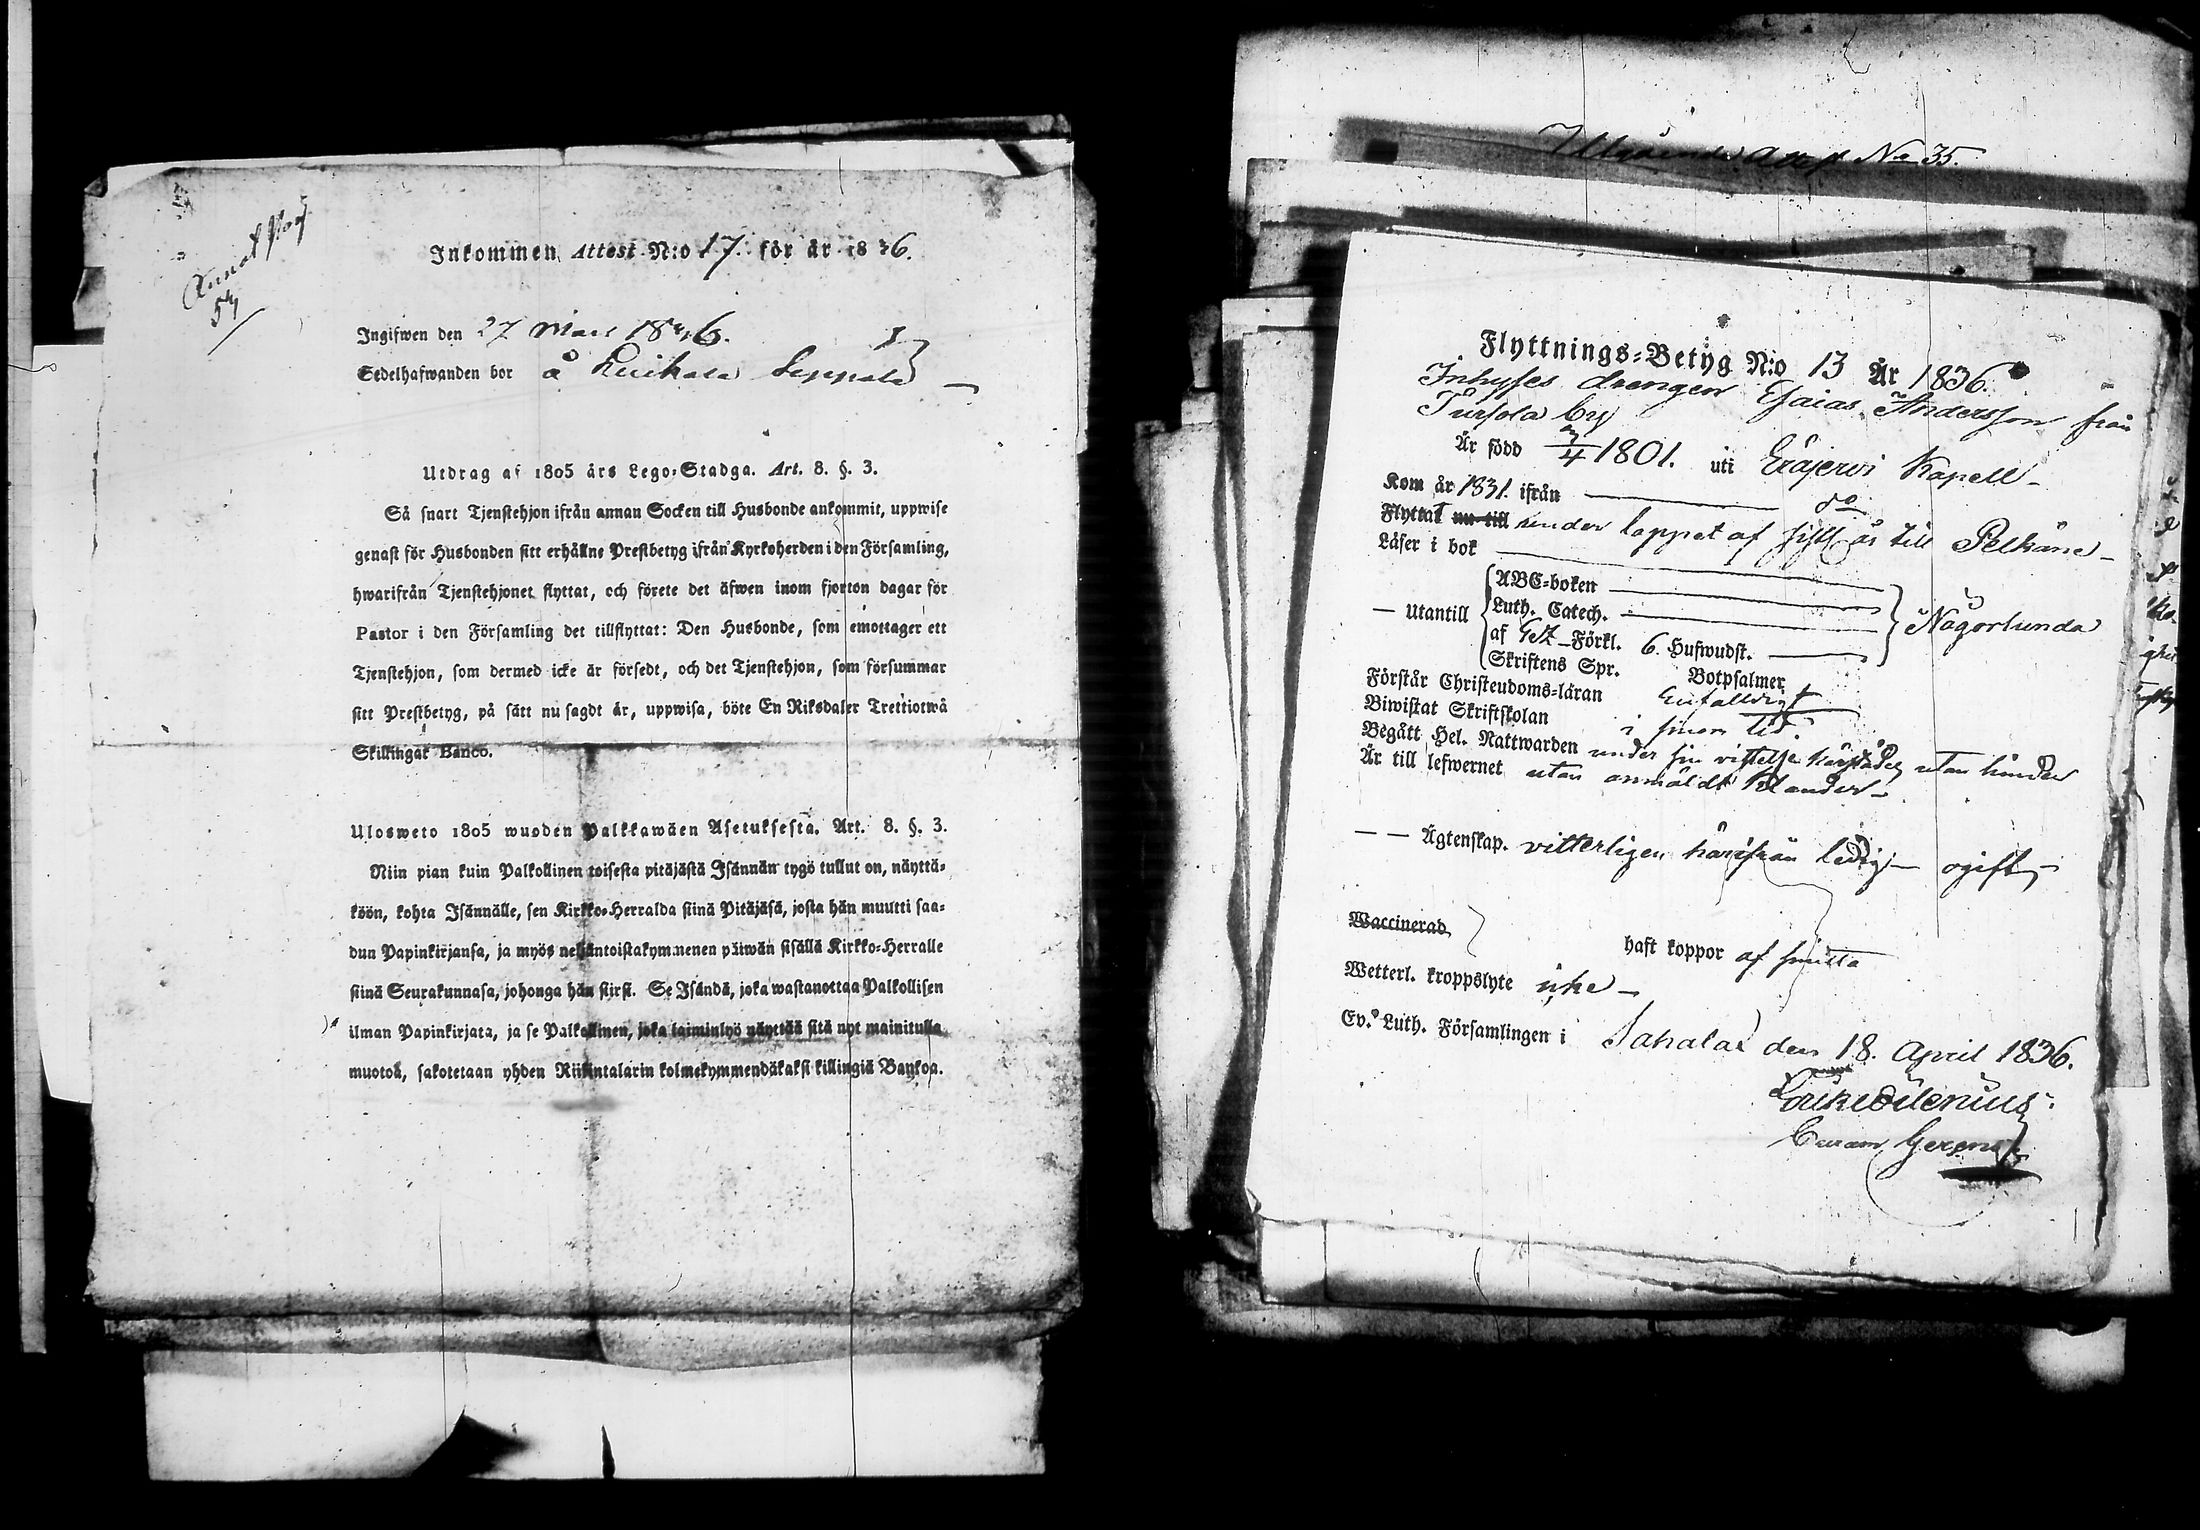 Inkommen Attest N:o 17. för år 1836.
Ingifwen den 27 Mars 1836.
Sedelhafwanden bor å Luikala Seppälä
Utdrag af 1805 års Lego-Stadga. Art. 8. §. 3.
Så snart Tjenstehjon ifrån annan Socken till Husbonde ankommit, uppwise
genast för Husbonden sitt erhållne Prestbetyg ifrån Kyrkoherden i den Församling,
hwarifrån Tjenstehjonet flyttat, och förete det äfwen inom fjorton dagar för
Pastor i den Församling det tillflyttat: Den Husbonde, som emottager ett
Tjenstehjon, som dermed icke är försedt, och det Tjenstehjon, som försummar
sitt Prestbetyg, på sätt nu sagdt är, uppwisa, böte En Riksdaler Trettiotwå
Skillingar Banco.
Ulosweto 1805 wuoden Palkkawäen Asetuksesta. Art. 8. §. 3.
Niin pian kuin Palkollinen toisesta pitäjästä Isännän tygö tullut on, näyttä-
köön, kohta Isännälle, sen Kirkko-Herralda siinä Pitäjäsä, josta hän muutti saa-
dun Papinkirjansa, ja myös neljäntoistakymmenen päiwän sisällä Kirkko-Herralle
siinä Seurakunnasa, johonga hän siirsi. Se Isändä, joka wastanottaa Palkollisen
ilman Papinkirjata, ja se Palkollinen, joka laiminlyö näyttää sitä nyt mainitulla
muotoä, sakotetaan yhden Riikintalarin kolmekymmendäkaksi killingiä Bankoa.
Utgående Attest No 35.
Flyttnings-Betyg N:o 13 År 1836.
Inhyses drengen Esaias Andersson från
Tursola by
Är född 3/4 1801. uti Eräjerwi Kapell
Kom år 1831. ifrån do
Flyttat nu till under loppet af sistl. år till Pelkäne
Läser i bok
ABC-boken
— Utantill Luth. Catech. Någorlunda
af Förkl. 6. Hufwudst.
Skriftens Spr. Botpsalmer
Förstår Christendoms-läran Enfalldigt
Biwistat Skriftskolan i sinom tid.
Begått Hel. Nattwarden under sin vistelse härstädes utan hinder
Är till lefwernet utan anmäldt klander
— — Ägtenskap. vitterligen härifrån ledig ogift
Waccinerad haft koppor af smitta
Wetterl. kroppslyte icke
Ev. Luth. Församlingen i Sahalax den 18. April 1836.